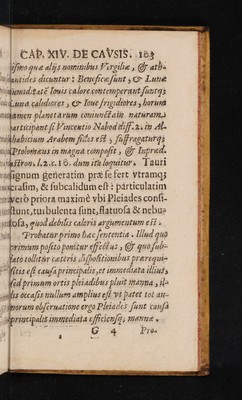 CAP. XIV. DE CAVSIS. 103
issimo quæ alijs nominibus Virgiliæ, & ath-
lantides dicuntur: Beneficæ sunt, & Lunæ
humiditatē Iouis calore contemperant suntq;
Luna calidiores, & Ioue frigidiores, horum
tamen planetarum coniunctam naturam
participant si Vincentio Nabod diff. 2. in Al-
habitium Arabem fides est, suffragaturq;
Ptolomæus in magna composit. & Iupræd.
astron. l. 2. c. 10. dum ita loquitur. Tauri
signum generatim præ se fert vtramq;
crasim, & subcalidum est: particulatim
verò priora maximè vbi Pleiades consi-
stunt, turbulenta sunt, flatuosa & nebu-
losa, quod debilis caloris argumentum est.
Probatur primo hæc sententia. Illud quo
primum posito ponitur effectus, & quo sub-
lato tollitur cæteris dispositionibus prærequi-
sitis est causa principalis, et immediata illius,
sed primum ortis pleiadibus pluit manna, il-
lis occasis nullum amplius est vt patet tot an-
norum obseruatione ergo Pleiades sunt causa
principalis immediata efficiensq; mannæ.
G 4 Pro-